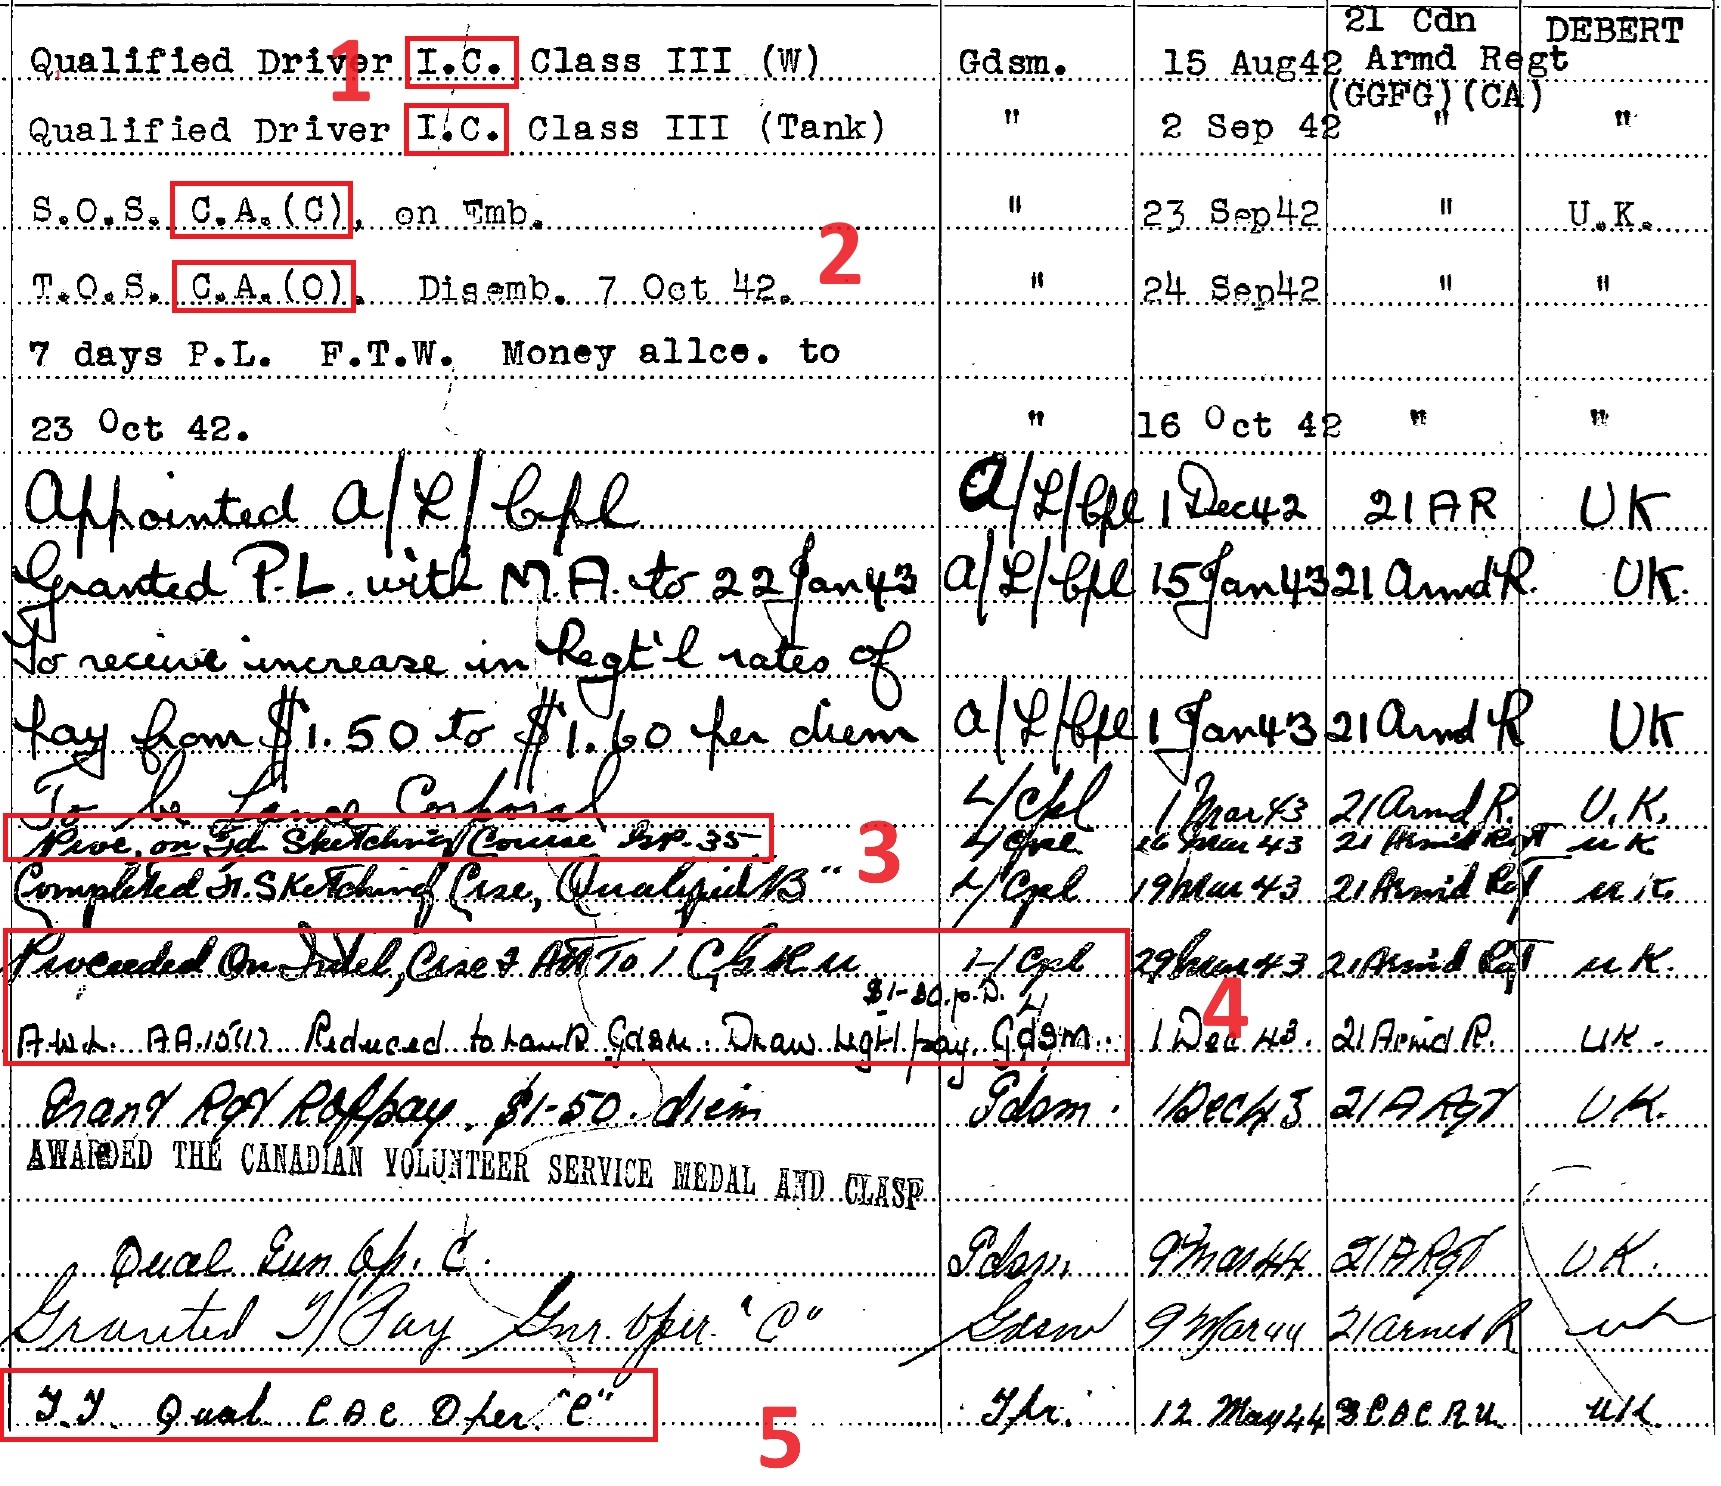 21 Cdn DEBERT
Qualified Driver I.C. Class III (W) Gdsm. 15 Aug42 Armd Regt
1
(GGFG)(CA)
Qualified Driver I.C. Class III (Tank) " 2 Sep 42 " "
S.O.S. C.A.(C), on Emb. " 23 Sep42 " U.K.
2
T.O.S. C.A.(O). Disemb. 7 Oct 42. " 24 Sep42 " "
7 days P.L. F.T.W. Money allce. to
23 Oct 42. " 16 Oct 42 " "
Appointed A/L/Cpl A/L/Cpl 1 Dec42 21 AR UK
Granted P.L. with M.A. to 22 Jan43 A/L/Cpl 15 Jan43 21 Armd R. UK.
To receive increase in Regt'l rates of
pay from $1.50 to $1.60 per diem A/L/Cpl 1 Jan43 21 Armd R UK
To be Lance Corporal L/Cpl 1 Mar43 21 Armd R. U.K.
Proc. on Fd. Sketching Course 35 L/Cpl 16 Mar 43 21 Armd Regt UK
3
Completed Fd. Sketching Crse, Qualified "B" L/Cpl 19 Mar 43 21 Armd Rgt UK.
Proceeded On Intel, Crse & Att To 1 C.G.R.U. L/Cpl 29 Mar 43 21 Armd Rgt UK.
$1-50.p.D. 4
A.W.L. AA.15(1) Reduced to rank Gdsm. Draw regtl pay. Gdsm. 1 Dec 43. 21 Armd R. UK.
Grant Rgt R of pay. $1-50. diem Gdsm. 1 Dec 43 21 A Rgt UK.
AWARDED THE CANADIAN VOLUNTEER SERVICE MEDAL AND CLASP
Qual Gun Op. C. Gdsm. 9 Mar 44 21 A Rgt UK.
Granted T/Pay Gnr. Oper. "C" Gdsm 9 Mar 44 21 Armd R UK
T.T. Qual C A C Oper. "C" Tpr. 12 May 44 3 C A C R U. UK.
5